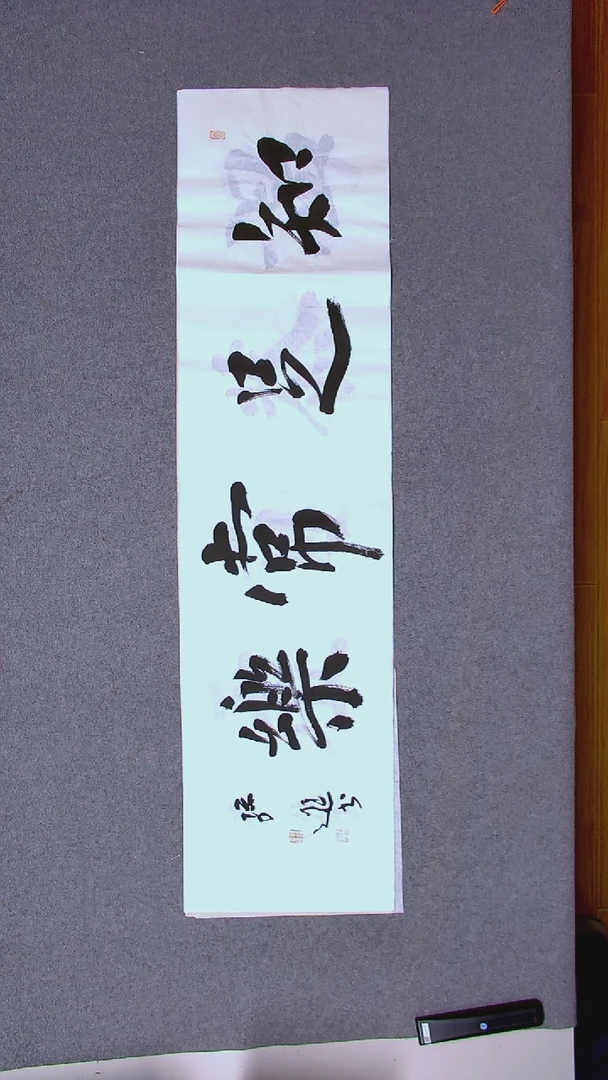 知足常樂
书